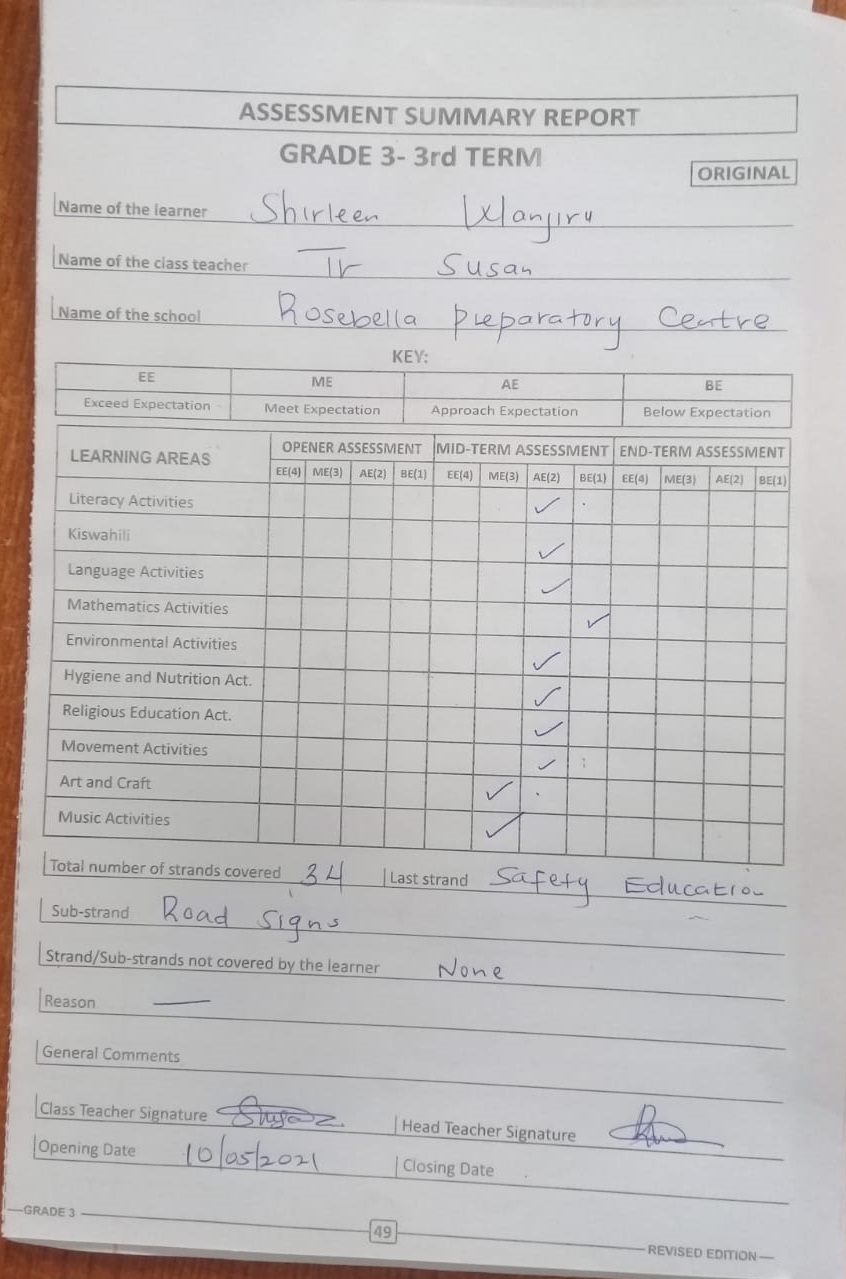 ASSESSMENT SUMMARY REPORT
GRADE 3- 3rd TERM
ORIGINAL
Name of the learner Shirleen Wanjiru
Name of the class teacher Tr Susan
Name of the school Rosebella Preparatory Centre
KEY:
EE ME AE BE
Exceed Expectation Meet Expectation Approach Expectation Below Expectation
LEARNING AREAS OPENER ASSESSMENT MID-TERM ASSESSMENT END-TERM ASSESSMENT
EE(4) ME(3) AE(2) BE(1) EE(4) ME(3) AE(2) BE(1) EE(4) ME(3) AE(2) BE(1)
Literacy Activities ✓
Kiswahili ✓
Language Activities ✓
Mathematics Activities ✓
Environmental Activities ✓
Hygiene and Nutrition Act. ✓
Religious Education Act. ✓
Movement Activities ✓
Art and Craft ✓
Music Activities ✓
Total number of strands covered 34 Last strand Safety Education
Sub-strand Road Signs
Strand/Sub-strands not covered by the learner None
Reason —
General Comments
Class Teacher Signature Head Teacher Signature
Opening Date 10/05/2021 Closing Date
GRADE 3
49
REVISED EDITION